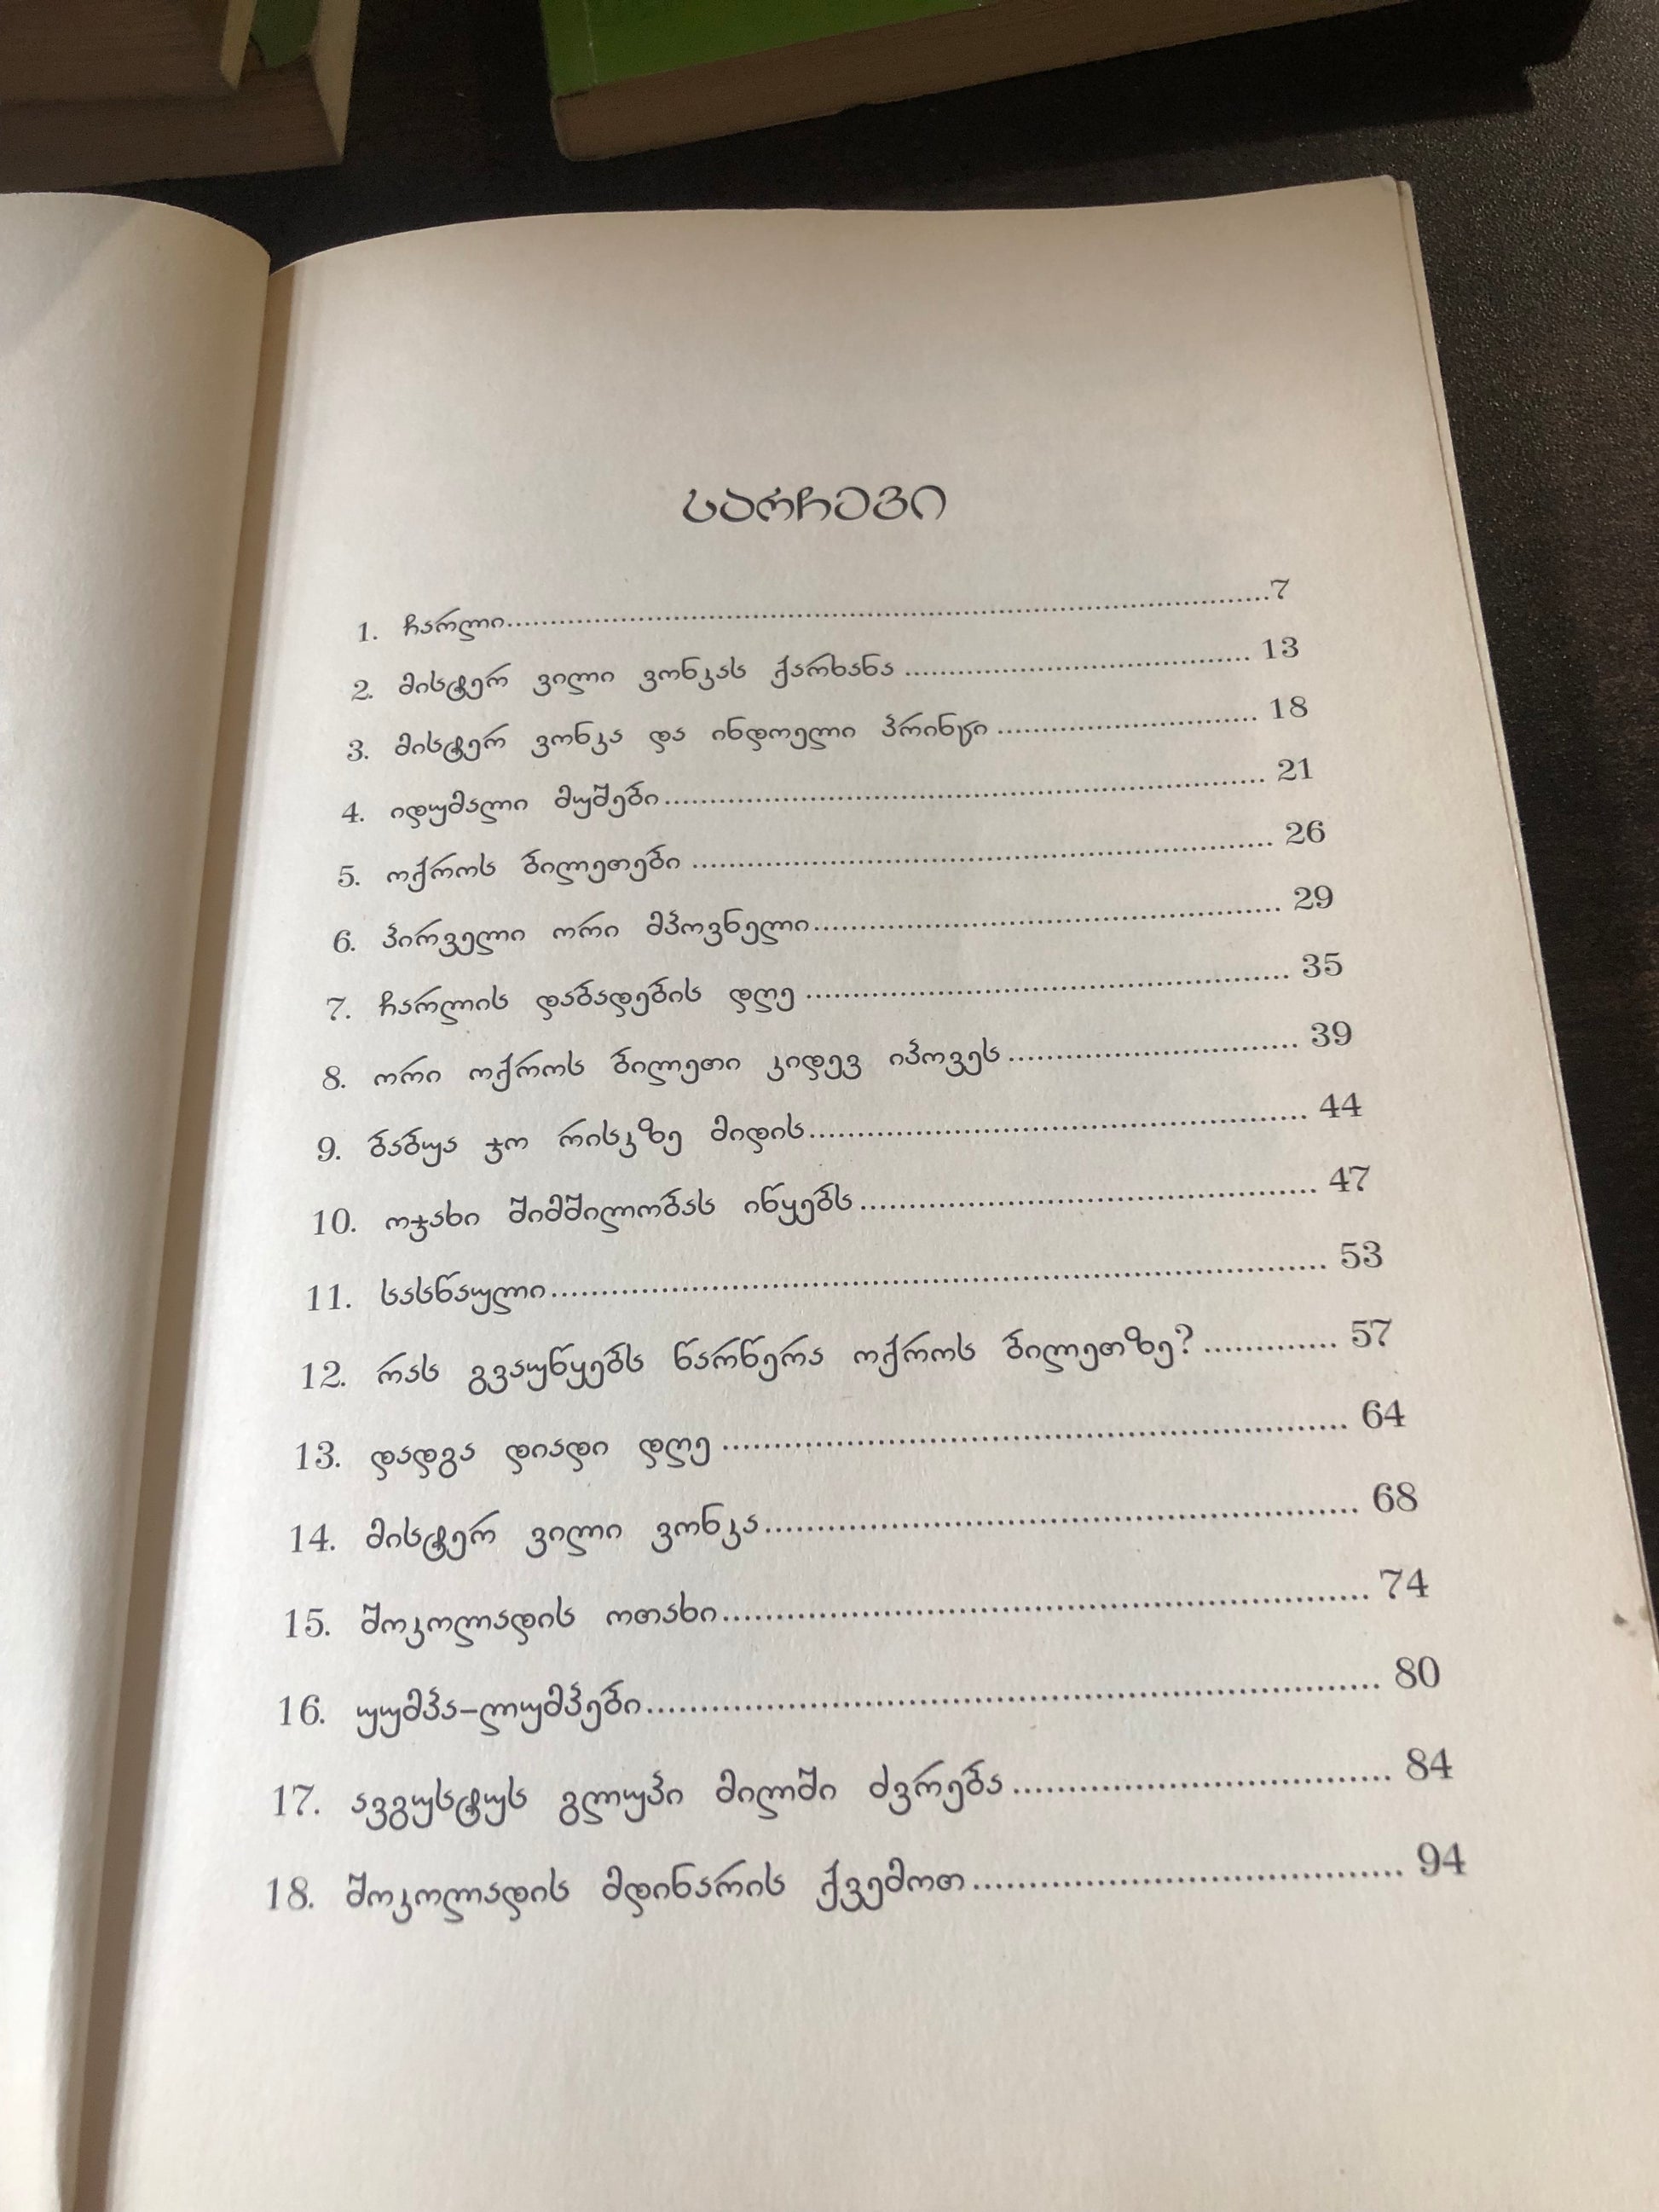 სარჩევი
1. ჩარლი..........................................................................7
2. მისტერ ვილი ვონკას ქარხანა ................................... 13
3. მისტერ ვონკა და ინდოელი პრინცი .......................... 18
4. იდუმალი მუშები........................................................... 21
5. ოქროს ბილეთები ......................................................... 26
6. პირველი ორი მპოვნელი............................................... 29
7. ჩარლის დაბადების დღე ............................................... 35
8. ორი ოქროს ბილეთი კიდევ იპოვეს............................ 39
9. ბაბუა ჯო რისკზე მიდის............................................... 44
10. ოჯახი შიმშილობას იწყებს........................................... 47
11. სასწაული....................................................................... 53
12. რას გვაუწყებს წარწერა ოქროს ბილეთზე? ............. 57
13. დადგა დიადი დღე ........................................................ 64
14. მისტერ ვილი ვონკა...................................................... 68
15. შოკოლადის ოთახი........................................................ 74
16. უუმპა-ლუმპები............................................................. 80
17. ავგუსტუს გლუპი მილში ძვრება................................ 84
18. შოკოლადის მდინარის ქვემოთ................................... 94